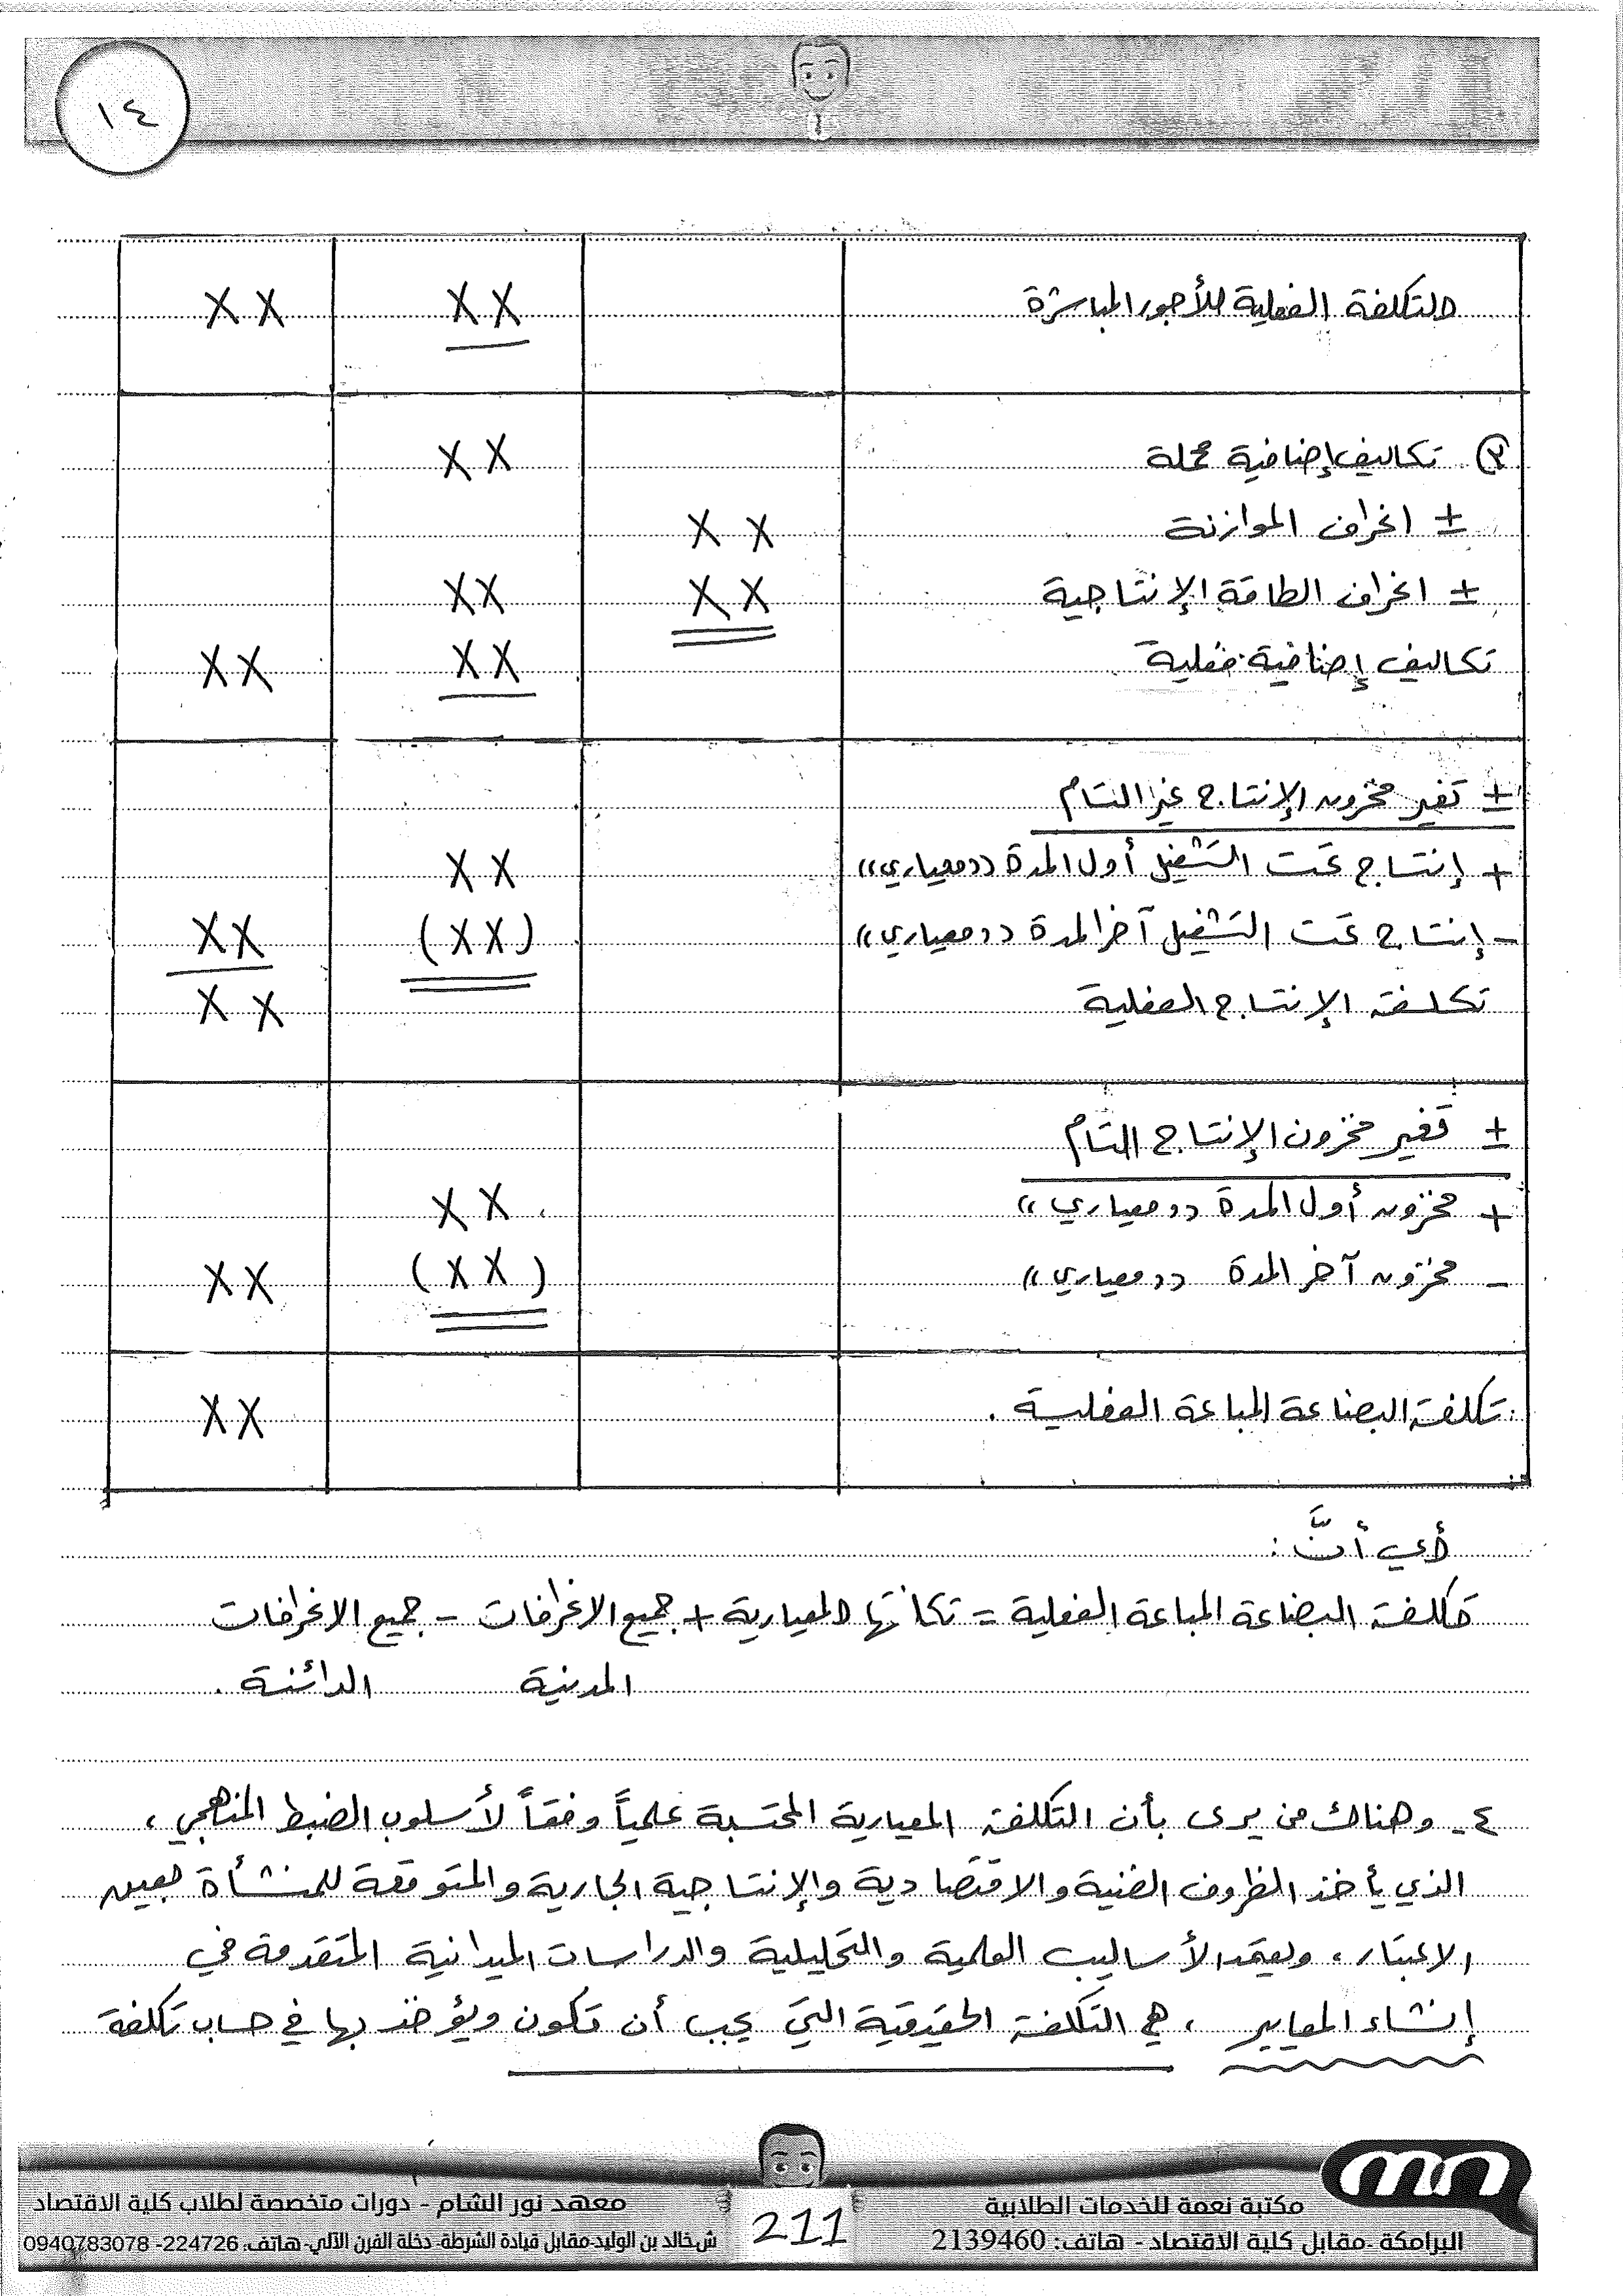 ١٤
التكلفة الفعلية للأجور المباشرة XX XX
٣ تكاليف إضافية محملة XX
± انحراف الموازنة XX
± انحراف الطاقة الإنتاجية XX XX
تكاليف إضافية فعلية XX XX
± تغير مخزون الإنتاج غير التام
+ إنتاج تحت التشغيل أول المدة ((معياري)) XX
- إنتاج تحت التشغيل آخر المدة ((معياري)) (XX) XX
تكلفة الإنتاج الفعلية XX
± تغير مخزون الإنتاج التام
+ مخزون أول المدة ((معياري)) XX
- مخزون آخر المدة ((معياري)) (XX) XX
تكلفة البضاعة المباعة الفعلية . XX
أي أنَّ :
تكلفة البضاعة المباعة الفعلية = تكلفتها المعيارية + جميع الانحرافات - جميع الانحرافات
المدينة الدائنة .
٤- وهناك من يرى بأن التكلفة المعيارية المحتسبة علمياً وفقاً لأسلوب الضبط المنهجي ،
الذي يأخذ الظروف الفنية والاقتصادية والإنتاجية الجارية والمتوقعة للمنشأة بعين
الاعتبار ، ويعتمد الأساليب العلمية والتحليلية والدراسات الميدانية المتقدمة في
إنشاء المعايير ، هي التكلفة الحقيقية التي يجب أن تكون ويؤخذ بها في حساب تكلفة
مكتبة نعمة للخدمات الطلابية
البرامكة -مقابل كلية الاقتصاد - هاتف: 2139460
211
معهد نور الشام - دورات متخصصة لطلاب كلية الاقتصاد
ش.خالد بن الوليد-مقابل قيادة الشرطة- دخلة الفرن الآلي- هاتف: 224726- 0940783078